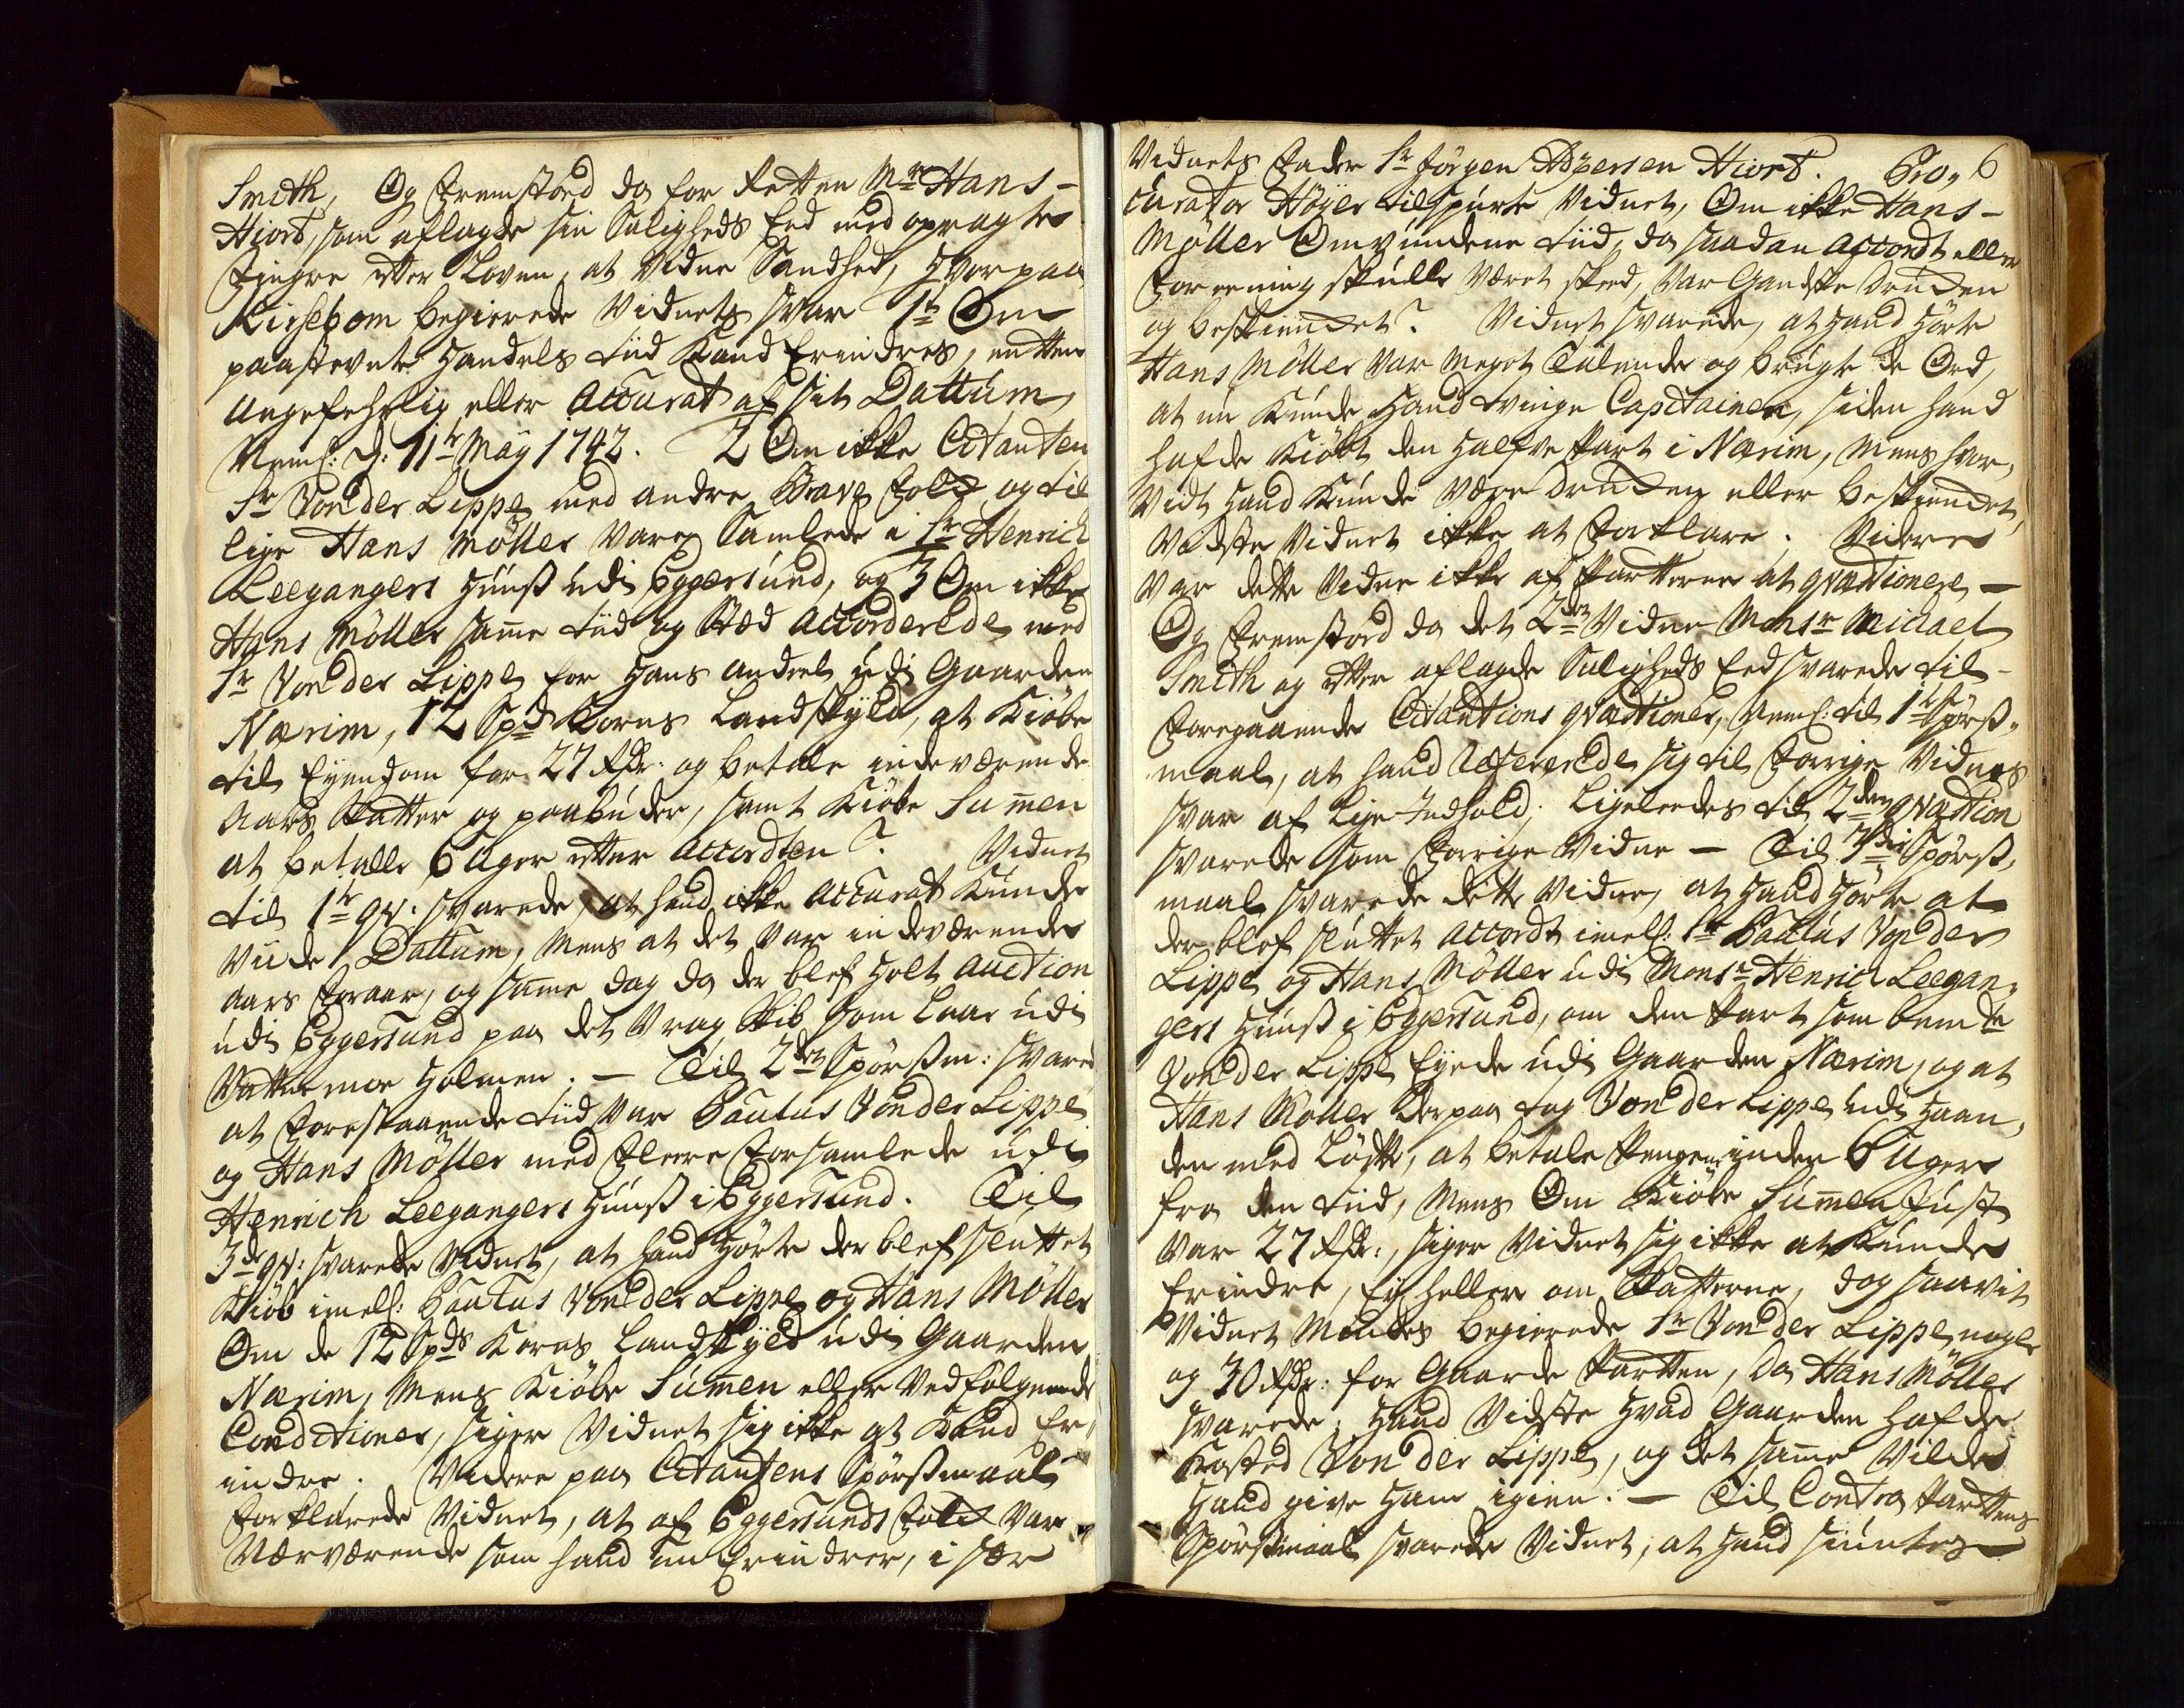 Smith, Og Fremstoed da for Retten Mr Hans-
Hiort, som aflagde sin Saligheds Eed med opragte
Fingre etter Loven, at Vidne Sandhed, Hvorpaa
Kirsebom begierede Vidnets svar 1t Om
paastevnte Handels tiid Kand Erindres, enten
Ungefehrlig eller Accurat af sit Dattum,
Neml: d: 11te May 1742. 2 Om ikke Citanten
Sr Von der Lippe med andre Brave Folck og til
lige Hans Møller vare Samlede i Sr Henrich
Leegangers Huuss udi Eggersund, og 3 Om ikke
Hans Møller samme tiid og Stæd Accorderede med
Sr Von der Lippe for Hans andeel udi Gaarden
Nærim, 12 Spd Korns Landskyld, at Kiøbe
til Eyendom for 27 Rdr: og betale indeværende
Aars Skatter og paabuder, samt Kiøbe Summen
at betalle 6 Uger etter Accordten? Vidnet
til 1te qv: svarede, at hand ikke Accurat Kunde
Viide Dattum, Mens at det Var indeværende
Aars Foraar, og samme dag da der blef Holt Auction
udi Eggersund paa det Vrag Skib som laae udi
Vatne moe Holmen. — Til 2den Spørssm: svared
at Forestaaende tiid Var Paulus Von der Lippe
og Hans Møller med Fleere Forsamlede udi
Henrich Leegangers Huuss i Eggersund. Til
3de qv: svarede Vidnet, at hand Hørte der blef sluttet
Kiøb imell: Paulus Von der Lippe og Hans Møller
Om de 12 Spds Korns Landskyld udi Gaarden
Nærim, Mens Kiøbe Summen eller Vedfølgende
Conditioner, siger Vidnet sig ikke at Kand Er-
indre. Videre paa Citantens Spørssmaal
Forklarede Vidnet, at af Eggersunds Folck Var
Nærværende som hand nu Erindrer, i sær
Vidnets Fader Sr Jørgen Hiort. Pro- 6
curator Høyer tilspurte Vidnet, Om ikke Hans-
Møller Omvundene tiid, da saadan Accordt eller
Foreening skulle Været skeed, Var Gandske Drucken
og beskiencket? Vidnet svarede, at Hand Hørte
Hans Møller Var Meget Talende og brugte de Ord,
at nu Kunde Hand tvinge Capitainen, siden hand
hafde Kiøbt den Halfve Part i Nærim, Mens hvor-
Vidt Hand Kunde Være Drucken eller beskiencket,
Vidste Vidnet ikke at Forklare. Videre
Var dette Vidne ikke af Partterne at qvæstionere —
Og Fremstoed da det 2det Vidne Monsr Michael
Smith og etter aflagde Saligheds Eed svarede til-
Foregaaende Citantions qvæstioner, Neml: til 1te Spørss-
maal, at hand Refererede sig til Forrige Vidnes
svar af Lige Indhold; Ligeleedes til 2den qvæstion
svarede som Forrige Vidne — Til 3die Spørss-
maal svarede dette Vidne, at Hand Hørte at
der blef sluttet Accordt imell: Sr Paulus Von der
Lippe og Hans Møller udi Monsr Henrich Leegan-
gers Huuss i Eggersund, om den Part som bemte
Von der Lippe Eyede udi Gaarden Nærim, og at
Hans Møller derpaa tog Von der Lippe udi Haan-
den med Løfte, at betale Pengene inden 6 Uger
fra den tiid, Mens Om Kiøbe Summen Just
Var 27 Rdr:, siger Vidnet sig ikke at Kunde
Erindre, Ey heller om Skatterne, dog saavit
Vidnet Mindes begierede Sr Von der Lippe nogle
og 30 Rdr: for Gaarde Partten, da Hans Møller
svarede: Hand Vidste Hvad Gaarden Hafde
Kosted Von der Lippe, og det samme Vilde
Hand give Ham igien. — Til Contra Parttens
Spørssmaal svarede Vidnet, at Hand siuntes